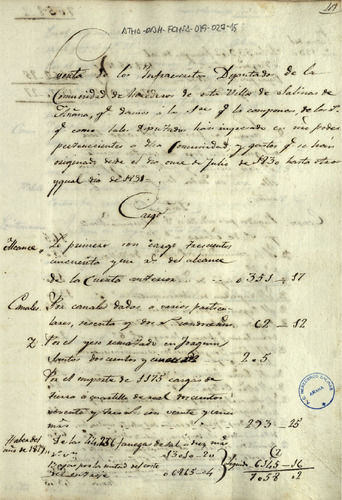 ATHA-DAH-FCHAA-019-029-15
Cuenta de los Infraescritos Diputados de la
Comunidad de herederos de esta Villa de Salinas de
Añana, q.e damos a los que la componen, de los
q.e como tales Diputados han ingresado en nro poder
pertenecientes a dha Comunidad y gastos q.e se han
originado desde el dia once de Julio de 1830 hasta otro
ygual dia de 1831.
Cargo
Alcance Lo primero son cargo trescientos
cincuenta y un r.s del alcance
de la Cuenta anterior 351-17
Canales. Por canales dadas a varios particu-
lares, sesenta y dos r.s con doce 62-12
Por el yeso rematado en Joaquin
doscientos y cinco 205
Por el importe de 1175 cargas de
tierra a cuartillo de real doscientos
noventa y tres con veinte y cinco
mrs 293-25
Haber del año de 1829. fanegas de sal a diez mrs
6345-16
7058-2